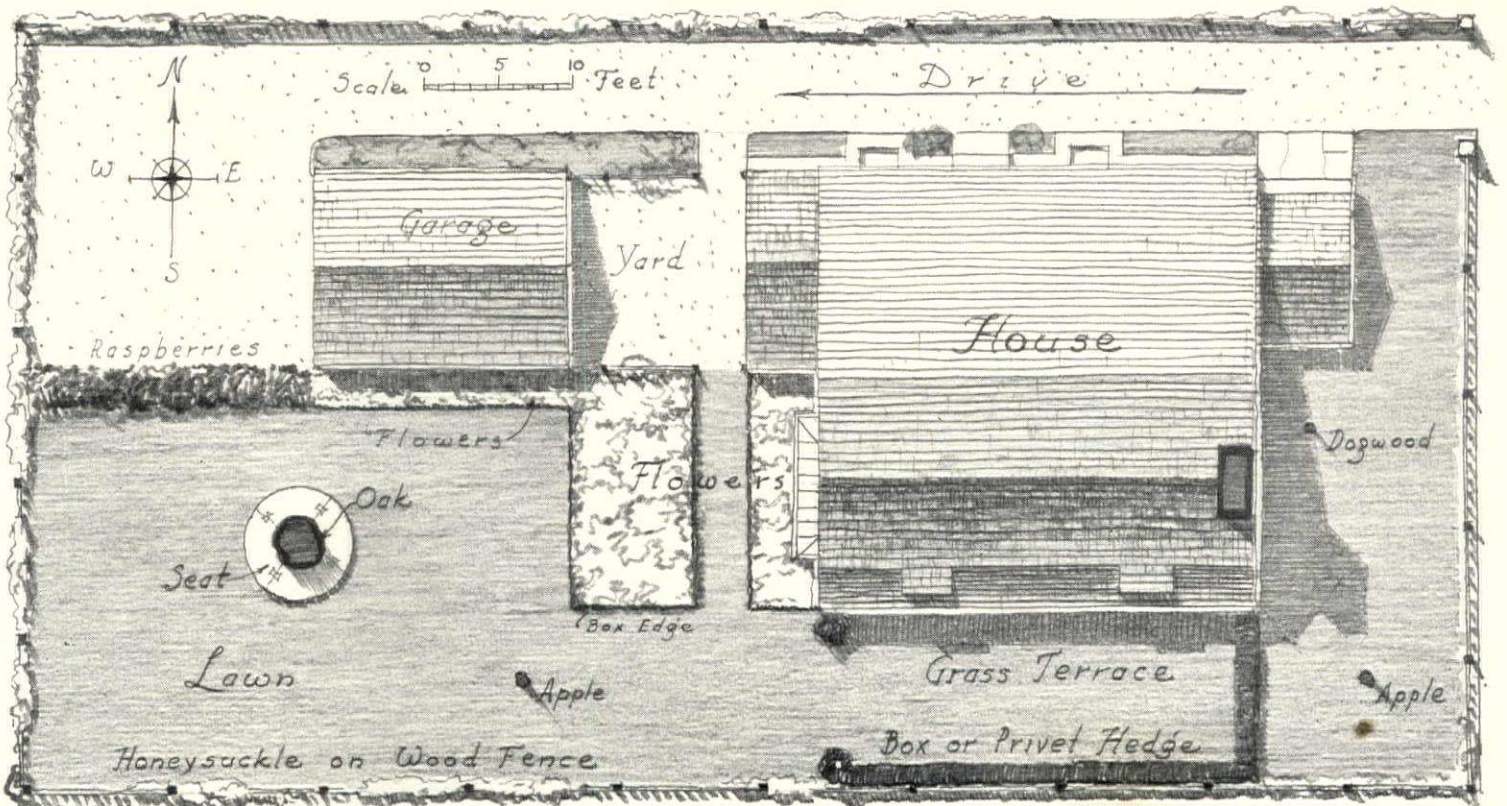 N
W E
S
Scale 0 5 10 Feet
Drive
Garage
Yard
House
Raspberries
Flowers
Dogwood
Flowers
Oak
Seat
Box Edge
Lawn
Apple
Grass Terrace
Apple
Box or Privet Hedge
Honeysuckle on Wood Fence